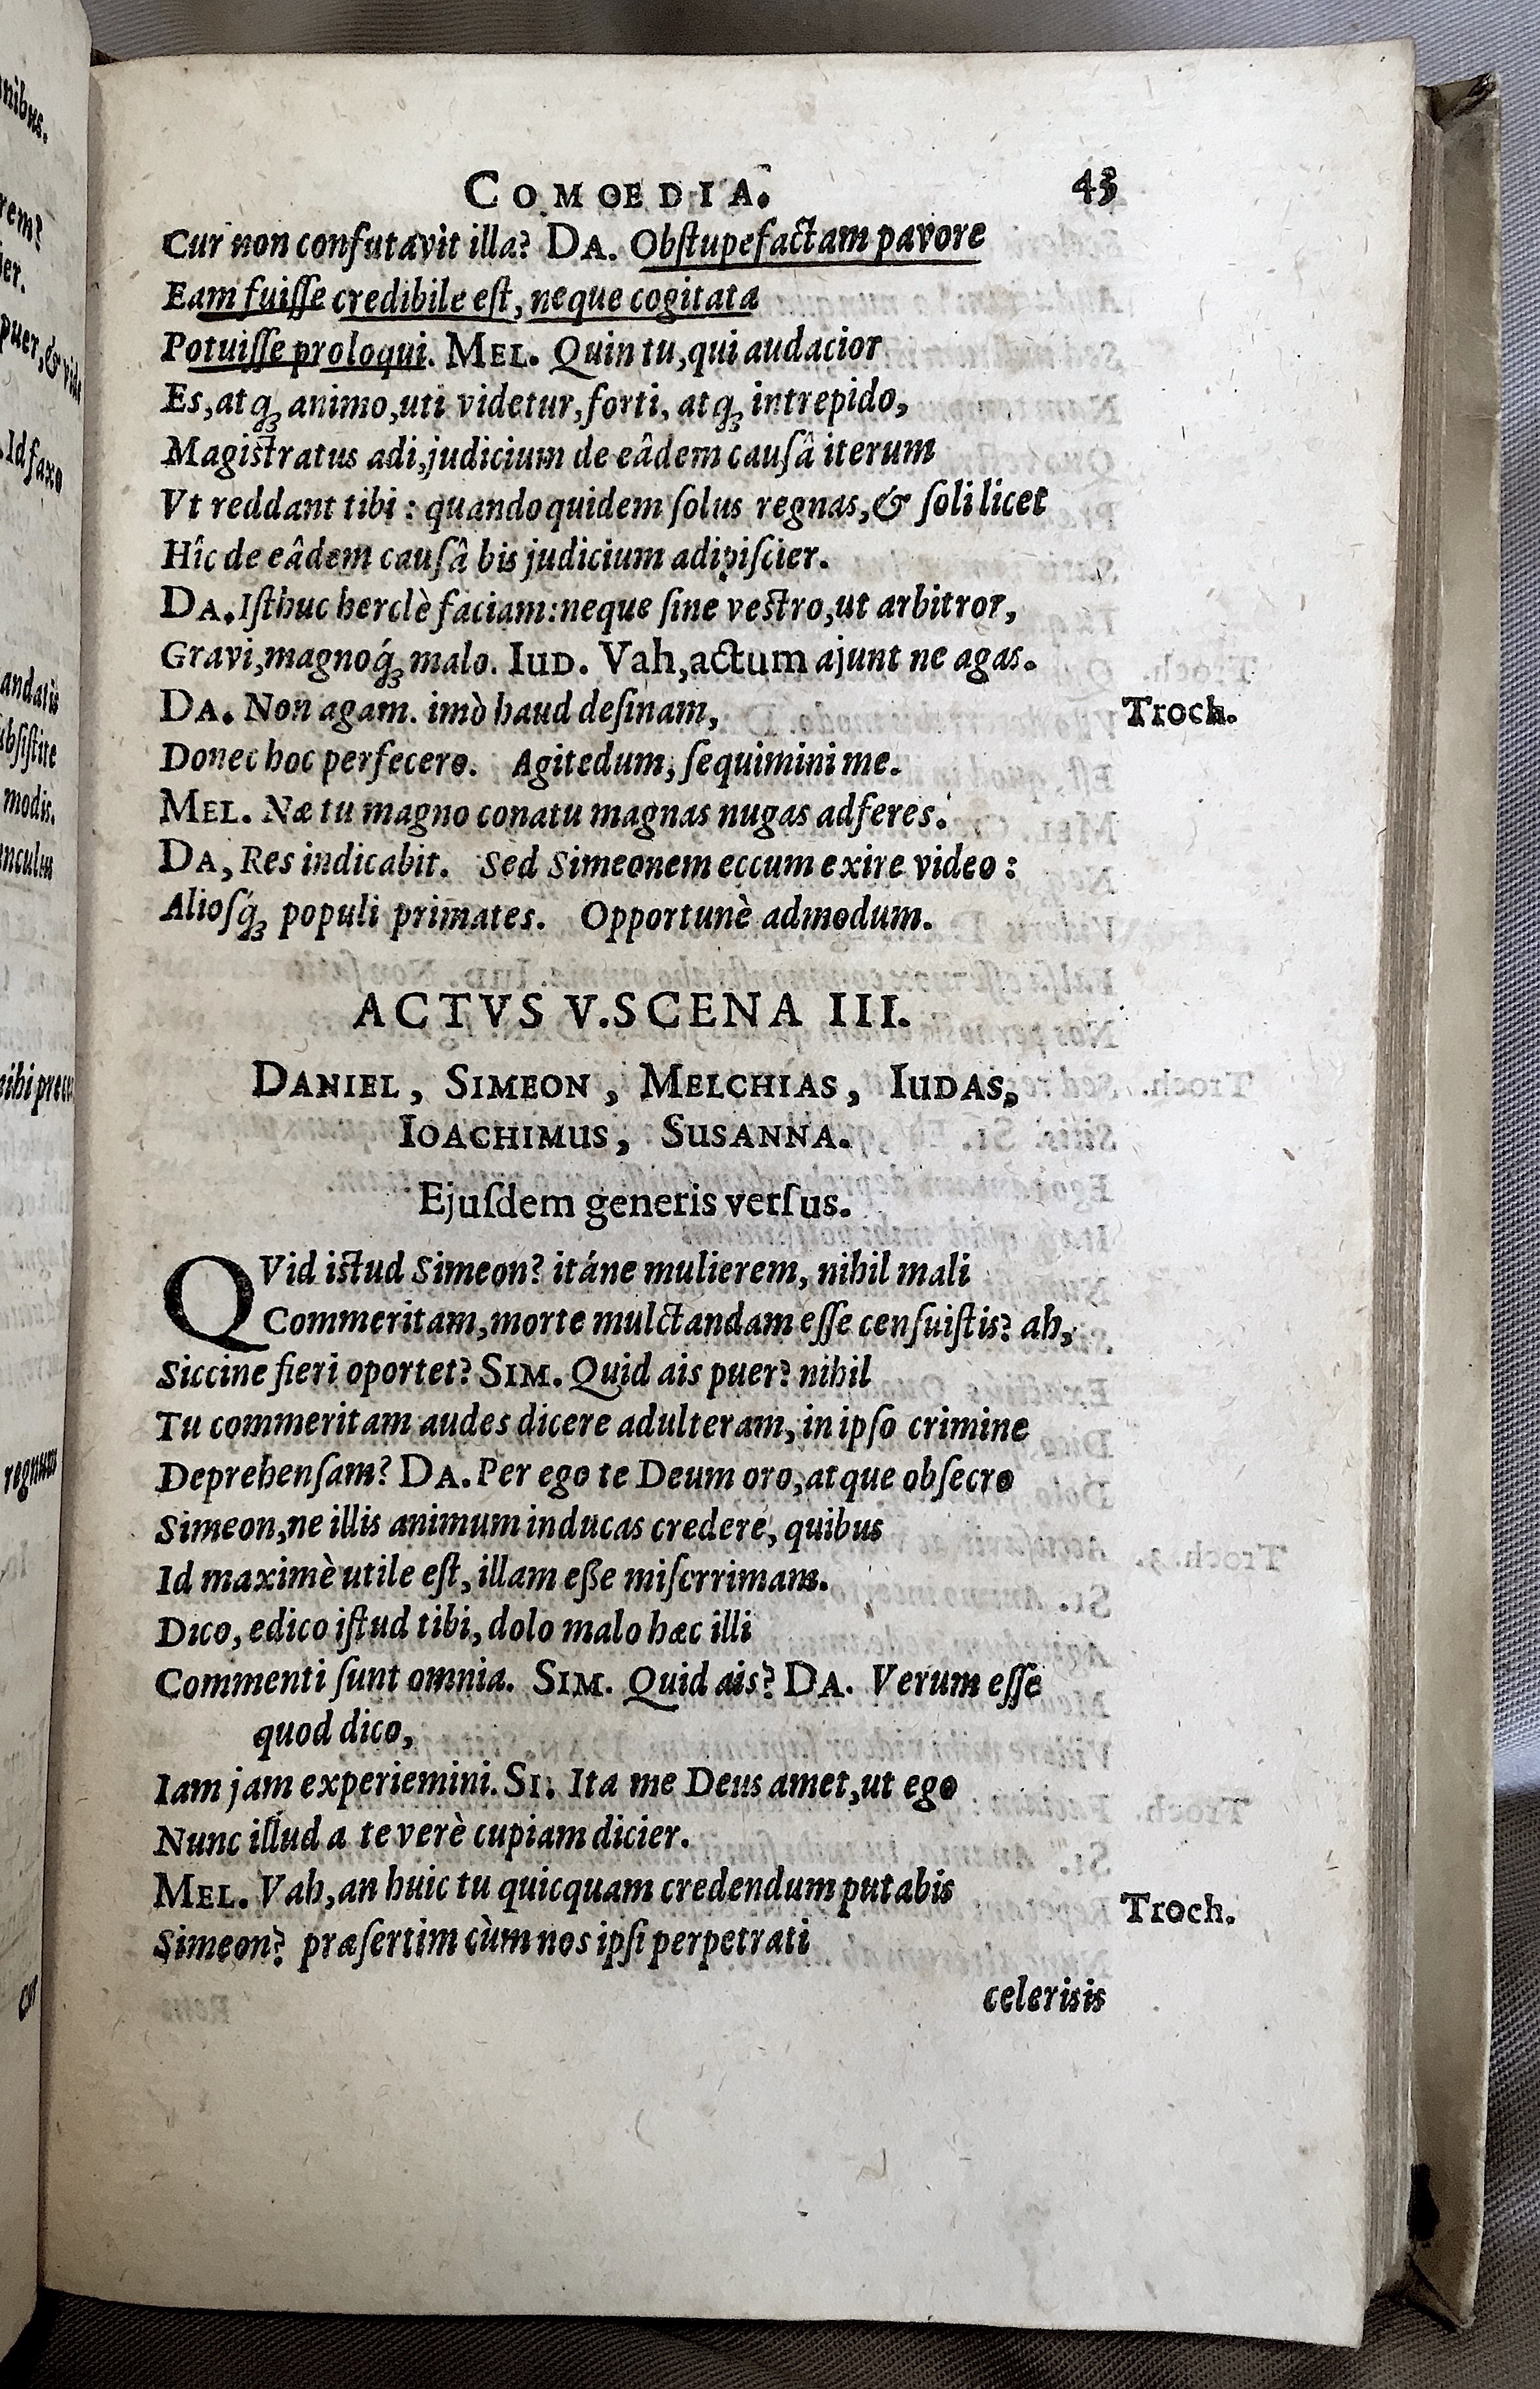 COMOEDIA. 43
Cur non confutavit illa? DA. Obſtupefactam pavore
Eam fuiſſe credibile eſt, neque cogitata
Potuiſſe proloqui. MEL. Quin tu, qui audacior
Es, atq; animo, uti videtur, forti, atq; intrepido,
Magistratus adi, judicium de eâdem cauſâ iterum
Vt reddant tibi: quandoquidem ſolus regnas, & ſoli licet
Hîc de eâdem cauſâ bis judicium adipiſcier.
DA. Iſthuc herclè faciam: neque ſine vestro, ut arbitror,
Gravi, magnoq́; malo. IUD. Vah, actum ajunt ne agas.
DA. Non agam. imò haud deſinam, Troch.
Donec hoc perfecero. Agitedum, ſequimini me.
MEL. Næ tu magno conatu magnas nugas adferes.
DA, Res indicabit. Sed Simeonem eccum exire video:
Alioſq́; populi primates. Opportunè admodum.
ACTVS V. SCENA III.
DANIEL, SIMEON, MELCHIAS, IUDAS,
IOACHIMUS, SUSANNA.
Ejuſdem generis verſus.
QVid istud Simeon? itáne mulierem, nihil mali
Commeritam, morte mulctandam eſſe cenſuiſtis? ah,
Siccine fieri oportet? SIM. Quid ais puer? nihil
Tu commeritam audes dicere adulteram, in ipſo crimine
Deprehenſam? DA. Per ego te Deum oro, atque obſecro
Simeon, ne illis animum inducas credere, quibus
Id maximè utile eſt, illam eße miſerrimam.
Dico, edico iſtud tibi, dolo malo hæc illi
Commenti ſunt omnia. SIM. Quid ais? DA. Verum eſſe
quod dico,
Iam jam experiemini. SI. Ita me Deus amet, ut ego
Nunc illud a te verè cupiam dicier.
MEL. Vah, an huic tu quicquam credendum putabis Troch.
Simeon? præſertim cùm nos ipſi perpetrati
celerisis